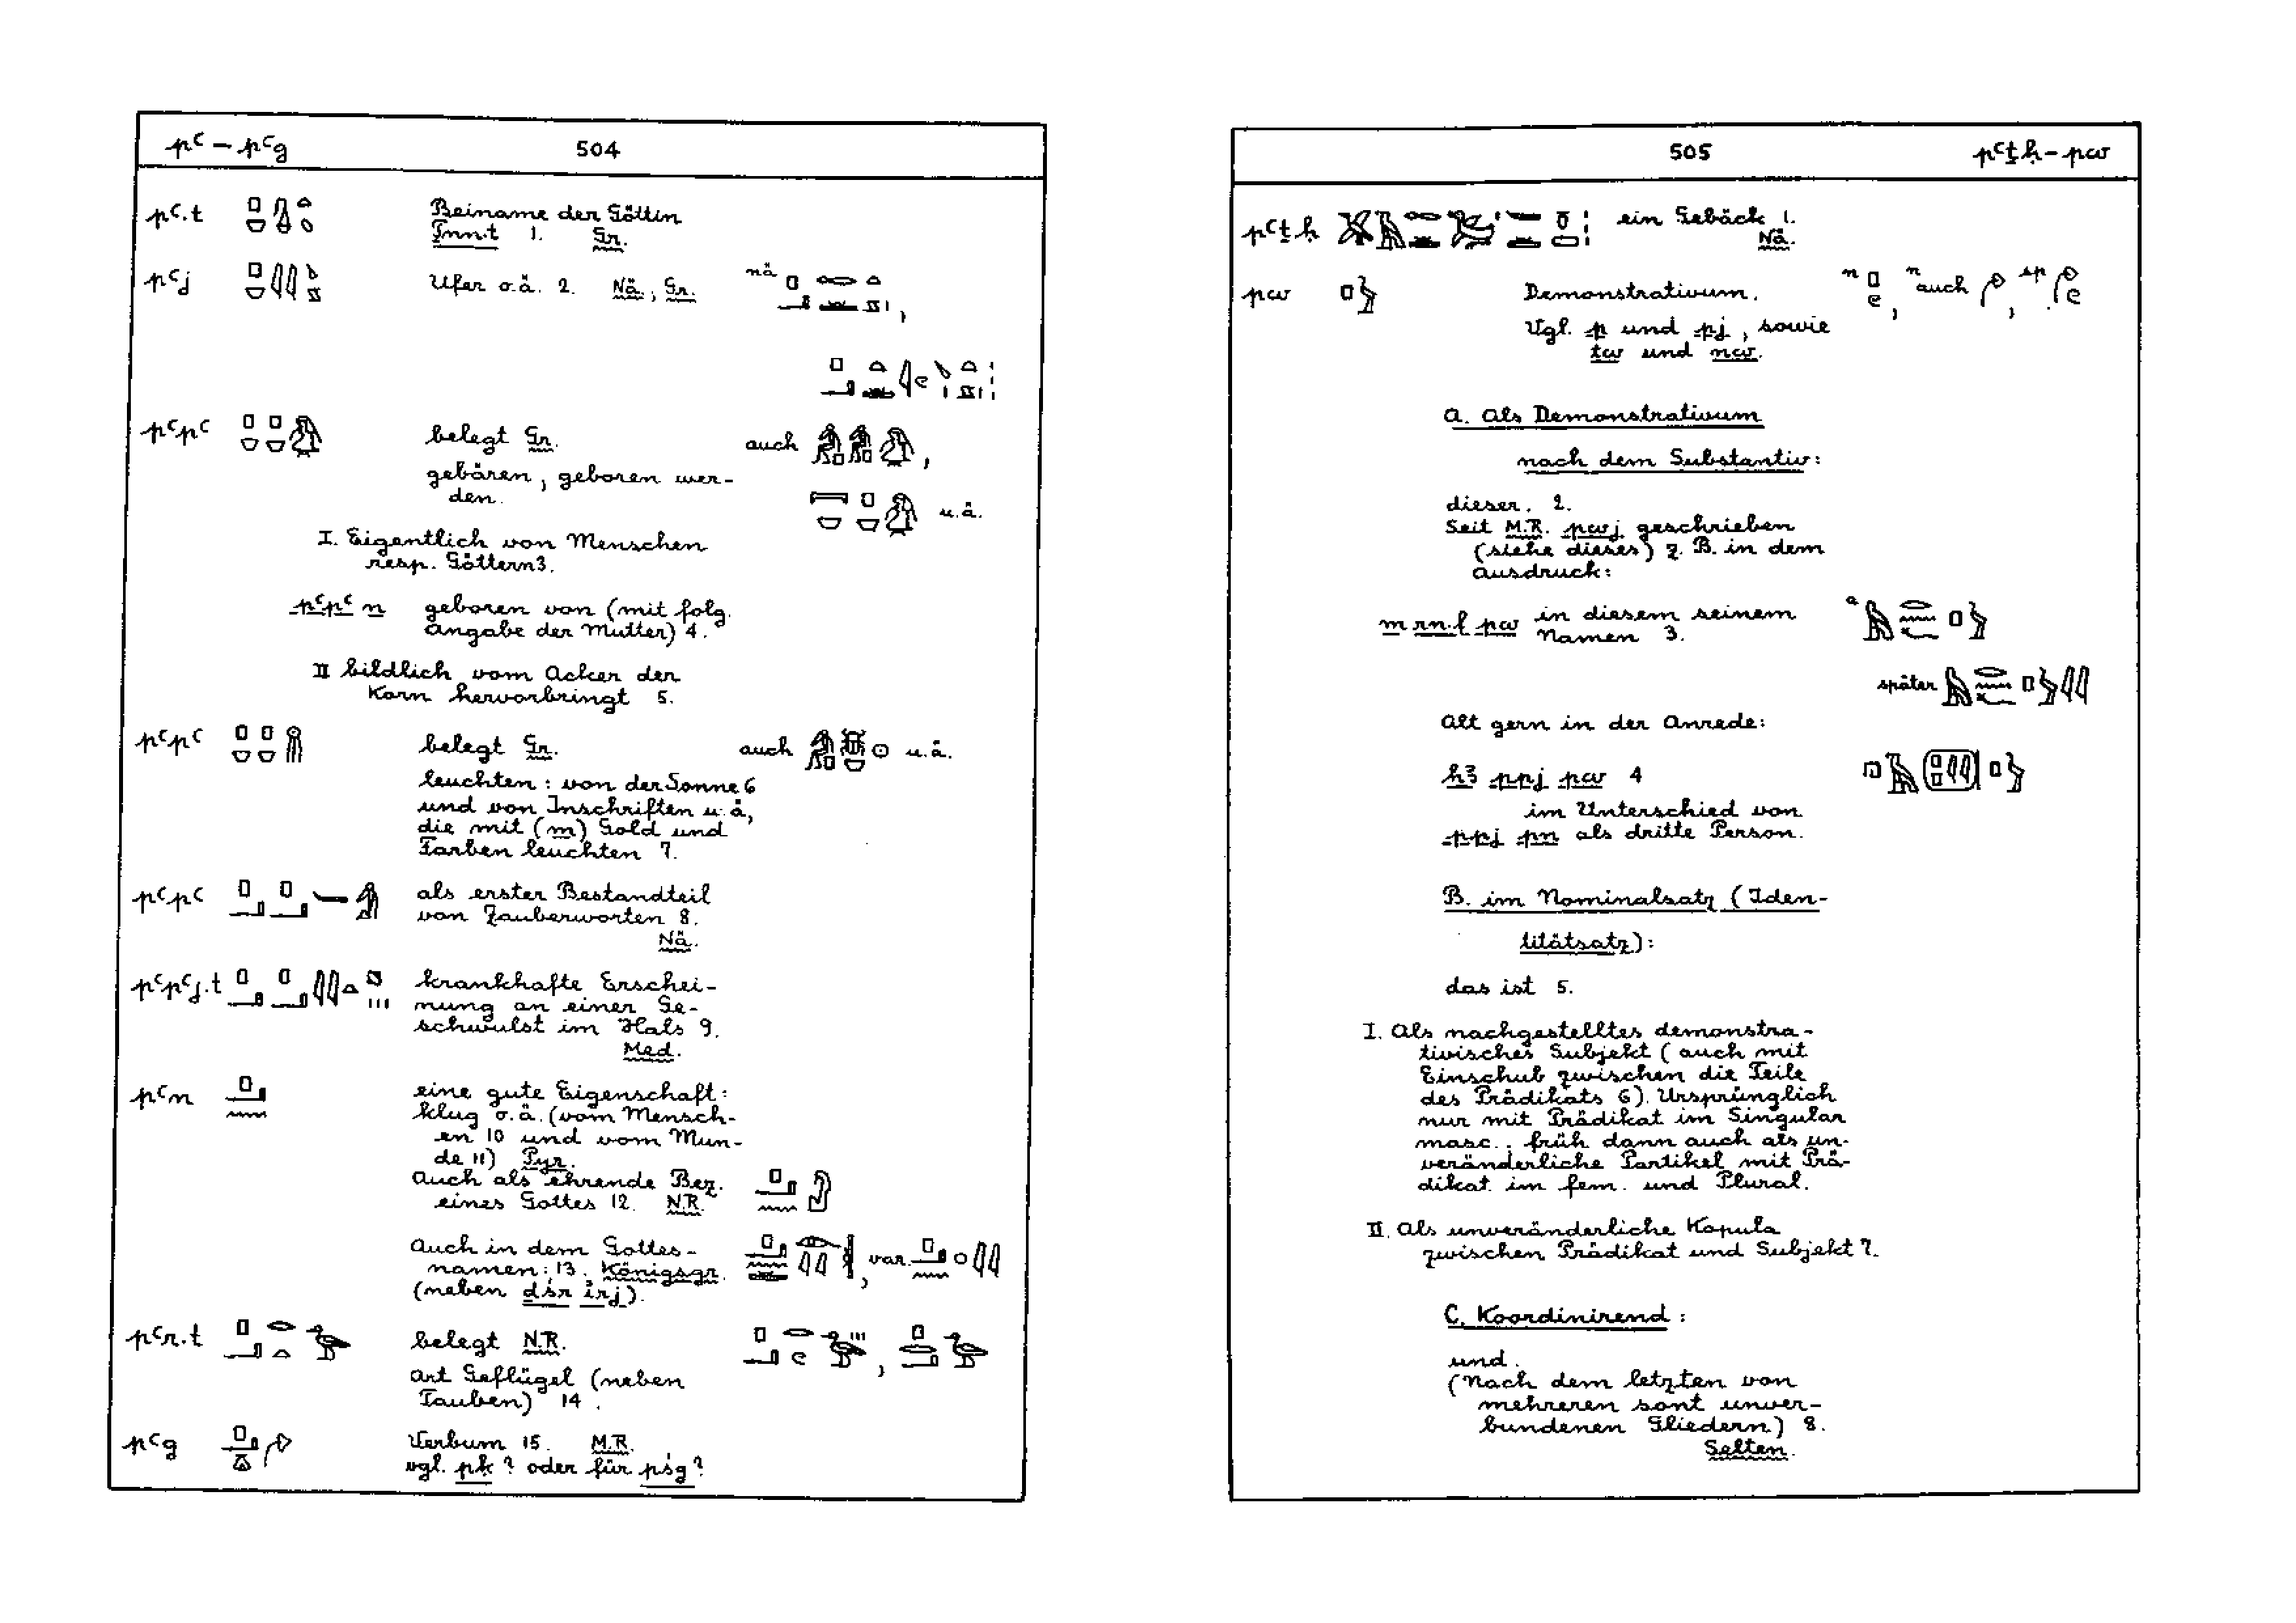 pꜥ – pꜥg 504
pꜥ.t Beiname der Göttin
Ṯnn.t 1. Gr.
pꜥj Ufer o.ä. 2. Nä., Gr. nä
pꜥpꜥ belegt Gr. auch
gebären, geboren wer-
den. u.ä.
I. Eigentlich von Menschen
resp. Göttern 3.
pꜥpꜥ n geboren von (mit folg.
Angabe der Mutter) 4.
II bildlich vom Acker der
Korn hervorbringt 5.
pꜥpꜥ belegt Gr. auch u.ä.
leuchten: von der Sonne 6
und von Inschriften u.ä,
die mit (m) Gold und
Farben leuchten 7.
pꜥpꜥ als erster Bestandteil
von Zauberworten 8.
Nä.
pꜥpꜥj.t krankhafte Erschei-
nung an einer Ge-
schwulst im Hals 9.
Med.
pꜥn eine gute Eigenschaft:
klug o.ä. (vom Mensch-
en 10 und vom Mun-
de 11) Pyr.
Auch als ehrende Bez.
eines Gottes 12. N.R.
Auch in dem Gottes-
namen: 13. Königsgr. , var.
(neben dśr irj).
pꜥr.t belegt N.R. ,
Art Geflügel (neben
Tauben) 14.
pꜥg Verbum 15. M.R.
vgl. pḳ? oder für pśg?
505 pꜥṯḥ – pw
pꜥṯḥ ein Gebäck 1.
Nä.
pw Demonstrativum. n , n auch , sp
Vgl. p und pj, sowie
tw und nw.
A. Als Demonstrativum
nach dem Substantiv:
dieser. 2.
Seit M.R. pwj geschrieben
(siehe dieses) z.B. in dem
Ausdruck:
m rn.f pw in diesem seinem a
Namen 3.
später
Alt gern in der Anrede:
hꜣ ppj pw 4
im Unterschied von
ppj pn als dritte Person.
B. im Nominalsatz (Iden-
titätsatz):
das ist 5.
I. Als nachgestelltes demonstra-
tivisches Subjekt (auch mit
Einschub zwischen die Teile
des Prädikats 6). Ursprünglich
nur mit Prädikat im Singular
masc., früh dann auch als un-
veränderliche Partikel mit Prä-
dikat im fem. und Plural.
II. Als unveränderliche Kopula
zwischen Prädikat und Subjekt 7.
C. Koordinirend:
und.
(Nach dem letzten von
mehreren sont unver-
bundenen Gliedern) 8.
Selten.